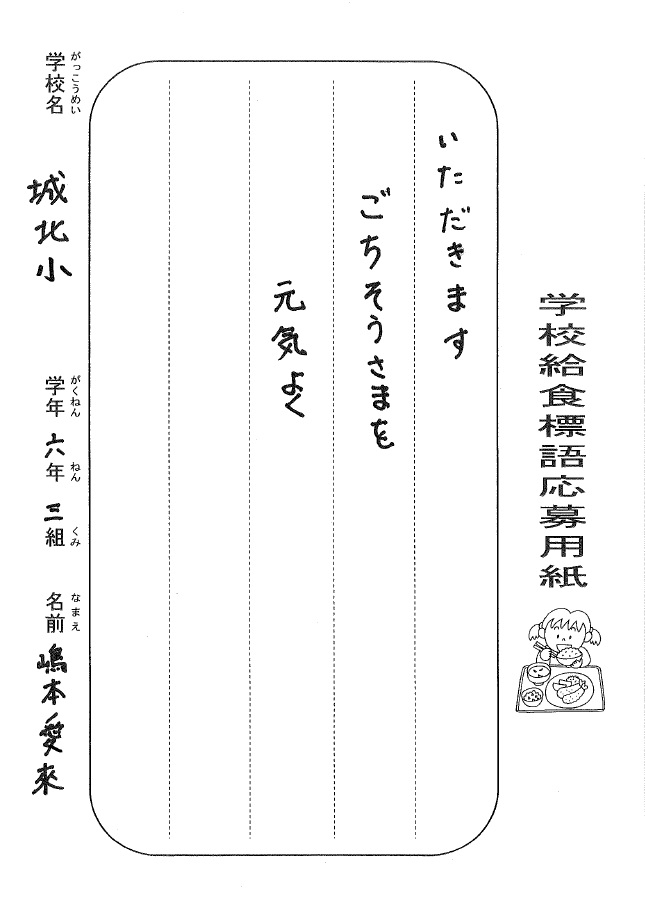 学校給食標語応募用紙
いただきます
ごちそうさまを
元気よく
がっこうめい
学校名 城北小
がくねん ねん くみ なまえ
学年 六年 三組 名前 嶋本愛來